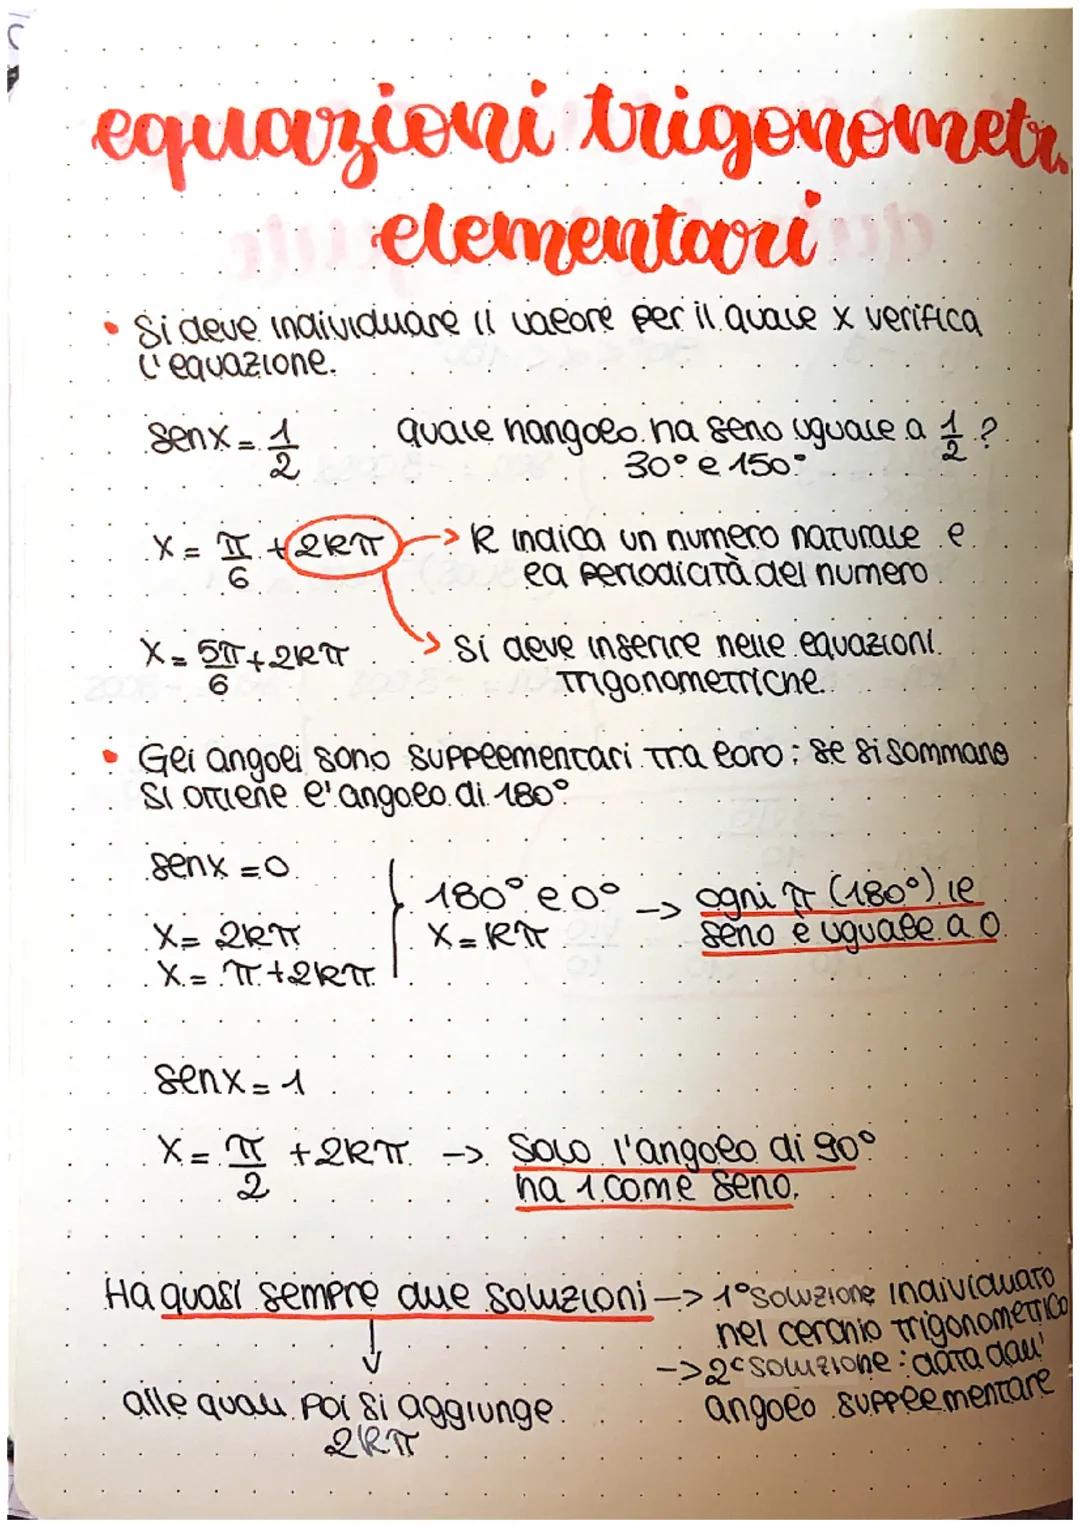 equazioni trigonometr.
elementari
• Si deve individuare il valore per il quale x verifica
l'equazione.
senx = 1/2 quale nangolo ha seno uguale a 1/2 ?
30° e 150°
x = π/6 + 2kπ -> k indica un numero naturale e
la periodicità del numero
x = 5π/6 + 2kπ -> Si deve inserire nelle equazioni
trigonometriche.
• Gli angoli sono supplementari tra loro: se si sommano
si ottiene l'angolo di 180°
senx = 0
180° e 0° -> ogni π (180°) il
x = 2kπ x = kπ seno è uguale a 0.
x = π + 2kπ
senx = 1
x = π/2 + 2kπ -> Solo l'angolo di 90°
ha 1 come seno.
Ha quasi sempre due soluzioni -> 1° soluzione individuato
nel cerchio trigonometrico
-> 2° soluzione: data dall'
alle quali poi si aggiunge angolo supplementare
2kπ